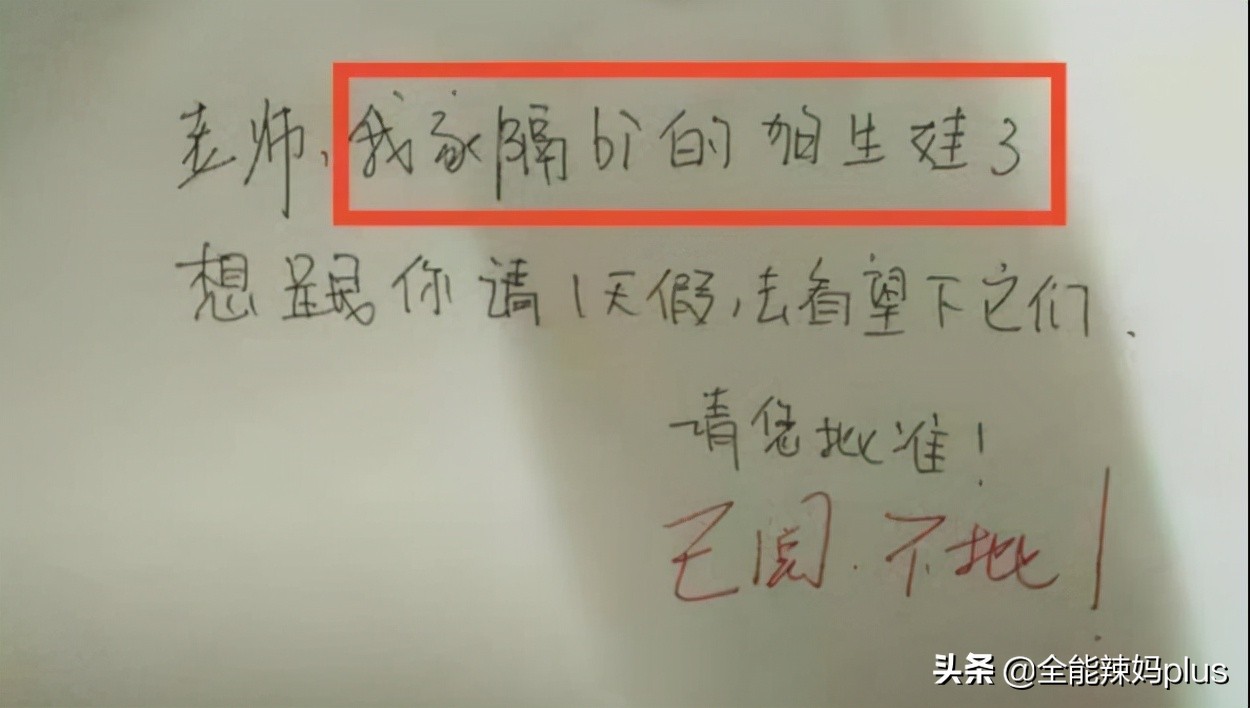 老师,我家隔bì的狗生娃了
想跟你请1天假,去看望下它们.
请您批准!
已阅.不批!
头条 @全能辣妈plus